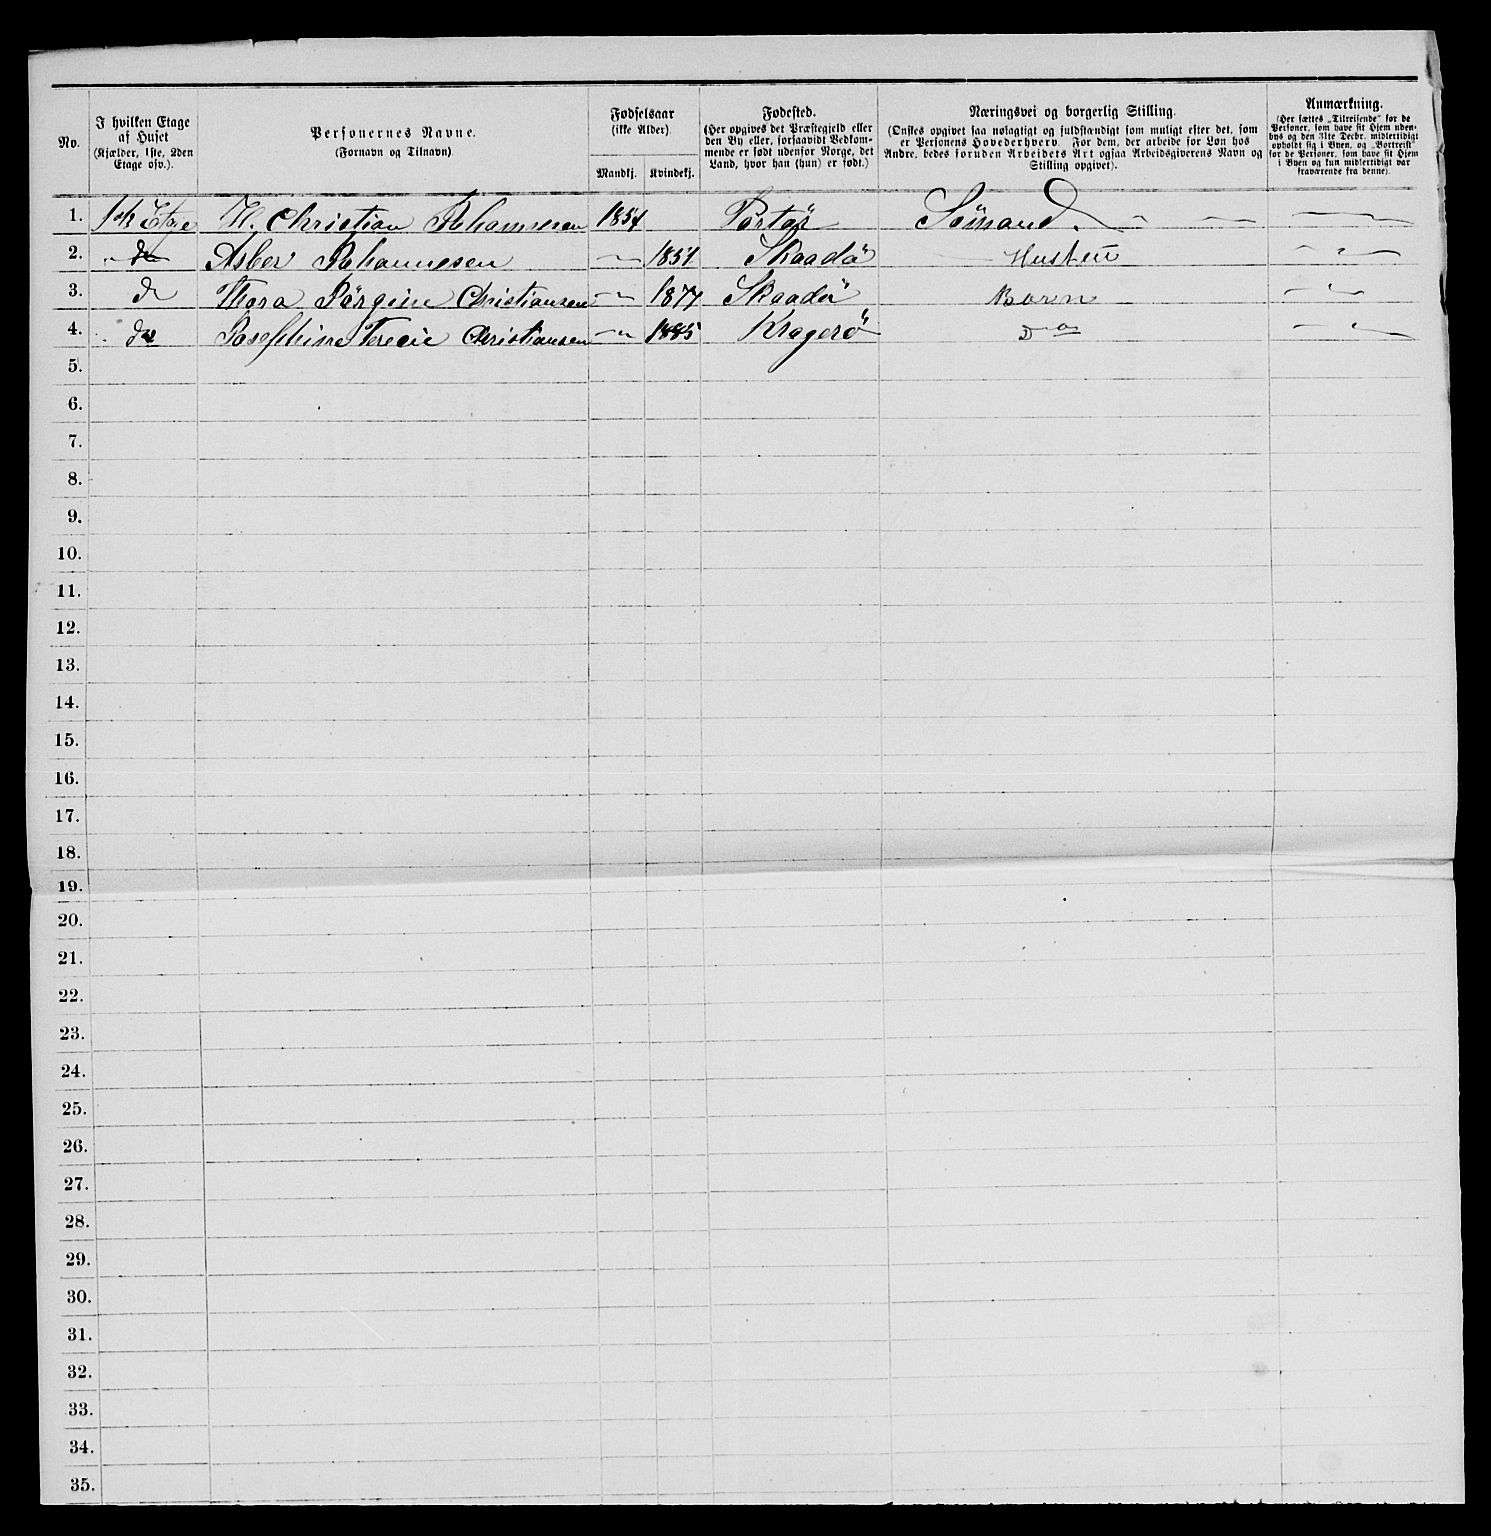 No.
I hvilken Etage
af Huset
(Kjælder, 1ste, 2den
Etage osv.).
Personernes Navne.
(Fornavn og Tilnavn)
Fødselsaar
(ikke Alder).
Mandkj. Kvindekj.
Fødested.
(Her opgives det Præstegjeld eller
den By eller, forsaavidt Vedkom-
mende er født udenfor Norge, det
Land, hvor han (hun) er født.)
Næringsvei og borgerlig Stilling.
(Ønskes opgivet saa nøiagtigt og fuldstændigt som muligt efter det, som
er Personens Hovederhverv. For dem, der arbeide for Løn hos
Andre, bedes foruden Arbeidets Art ogsaa Arbeidsgiverens Navn og
Stilling opgivet).
Anmærkning.
(Her sættes „Tilreisende" for de
Personer, som have sit Hjem uden-
bys og den 31te Decbr. midlertidigt
opholdt sig i Byen, og „Bortreist"
for de Personer, som have sit Hjem
i Byen og kun midlertidigt var
fraværende fra denne).
1. Etage H. Christian Johannesen 1854 Portör Sömand.
2. do Johannesen 1851 Skaadö Hustru
3. do Thora Jörgine Christiansen 1877 Skaadö Barn
4. do Josephine Christiansen 1885 Kragerö Do
5.
6.
7.
8.
9.
10.
11.
12.
13.
14.
15.
16.
17.
18.
19.
20.
21.
22.
23.
24.
25.
26.
27.
28.
29.
30.
31.
32.
33.
34.
35.